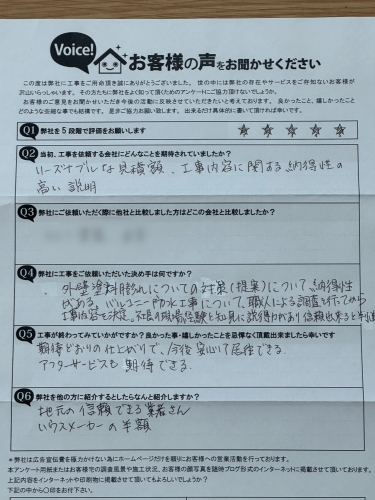 Voice!
お客様の声をお聞かせください
この度は弊社に工事をご用命頂き誠にありがとうございました。世の中には弊社の存在やサービスをご存知ないお客様が
沢山いらっしゃいます。その方たちに弊社をよく知って頂くためのアンケートにご協力頂けないでしょうか。
お客様のご意見をお聞かせいただき今後の活動に反映させていただきたいと考えております。良かったこと、嬉しかったこと
どのような些細な事でも結構です。是非ご協力お願い致します。出来るだけ具体的に書いて頂ければ幸いです。
Q1 弊社を5段階で評価をお願いします ☆ ☆ ☆ ☆ ☆
Q2 当初、工事を依頼する会社にどんなことを期待されていましたか?
リーズナブルな見積額、工事内容に関する納得性の
高い説明
Q3 弊社にご依頼いただく際に他社と比較しました方はどこの会社と比較しましたか?
Q4 弊社に工事をご依頼いただいた決め手は何ですか?
・外壁塗料膨れについての対策(提案)について、納得性
がある。バルコニー防水工事について、職人による調査を行ってから
工事内容を決定。社長の現場経験と知見に説得力があり信頼出来ると判
Q5 工事が終わってみていかがですか?良かった事・嬉しかったことを忌憚なく頂戴出来ましたら幸いです
期待どおりの仕上がりで、今後安心して居住できる。
アフターサービスも期待できる。
Q6 弊社を他の方に紹介するとしたらなんと紹介しますか?
地元の信頼できる業者さん
ハウスメーカーの半額
*弊社は広告宣伝費を極力かけない為にホームページだけを頼りにお客様への営業活動を行っております。
本アンケート用紙またはお客様宅の調査風景や施工状況、お客様の顔写真を随時ブログ形式のインターネットに掲載させて頂いております。
上記内容をインターネットや印刷物に掲載させて頂いてもよろしいでしょうか?
下記の中から〇印をお付け下さい。